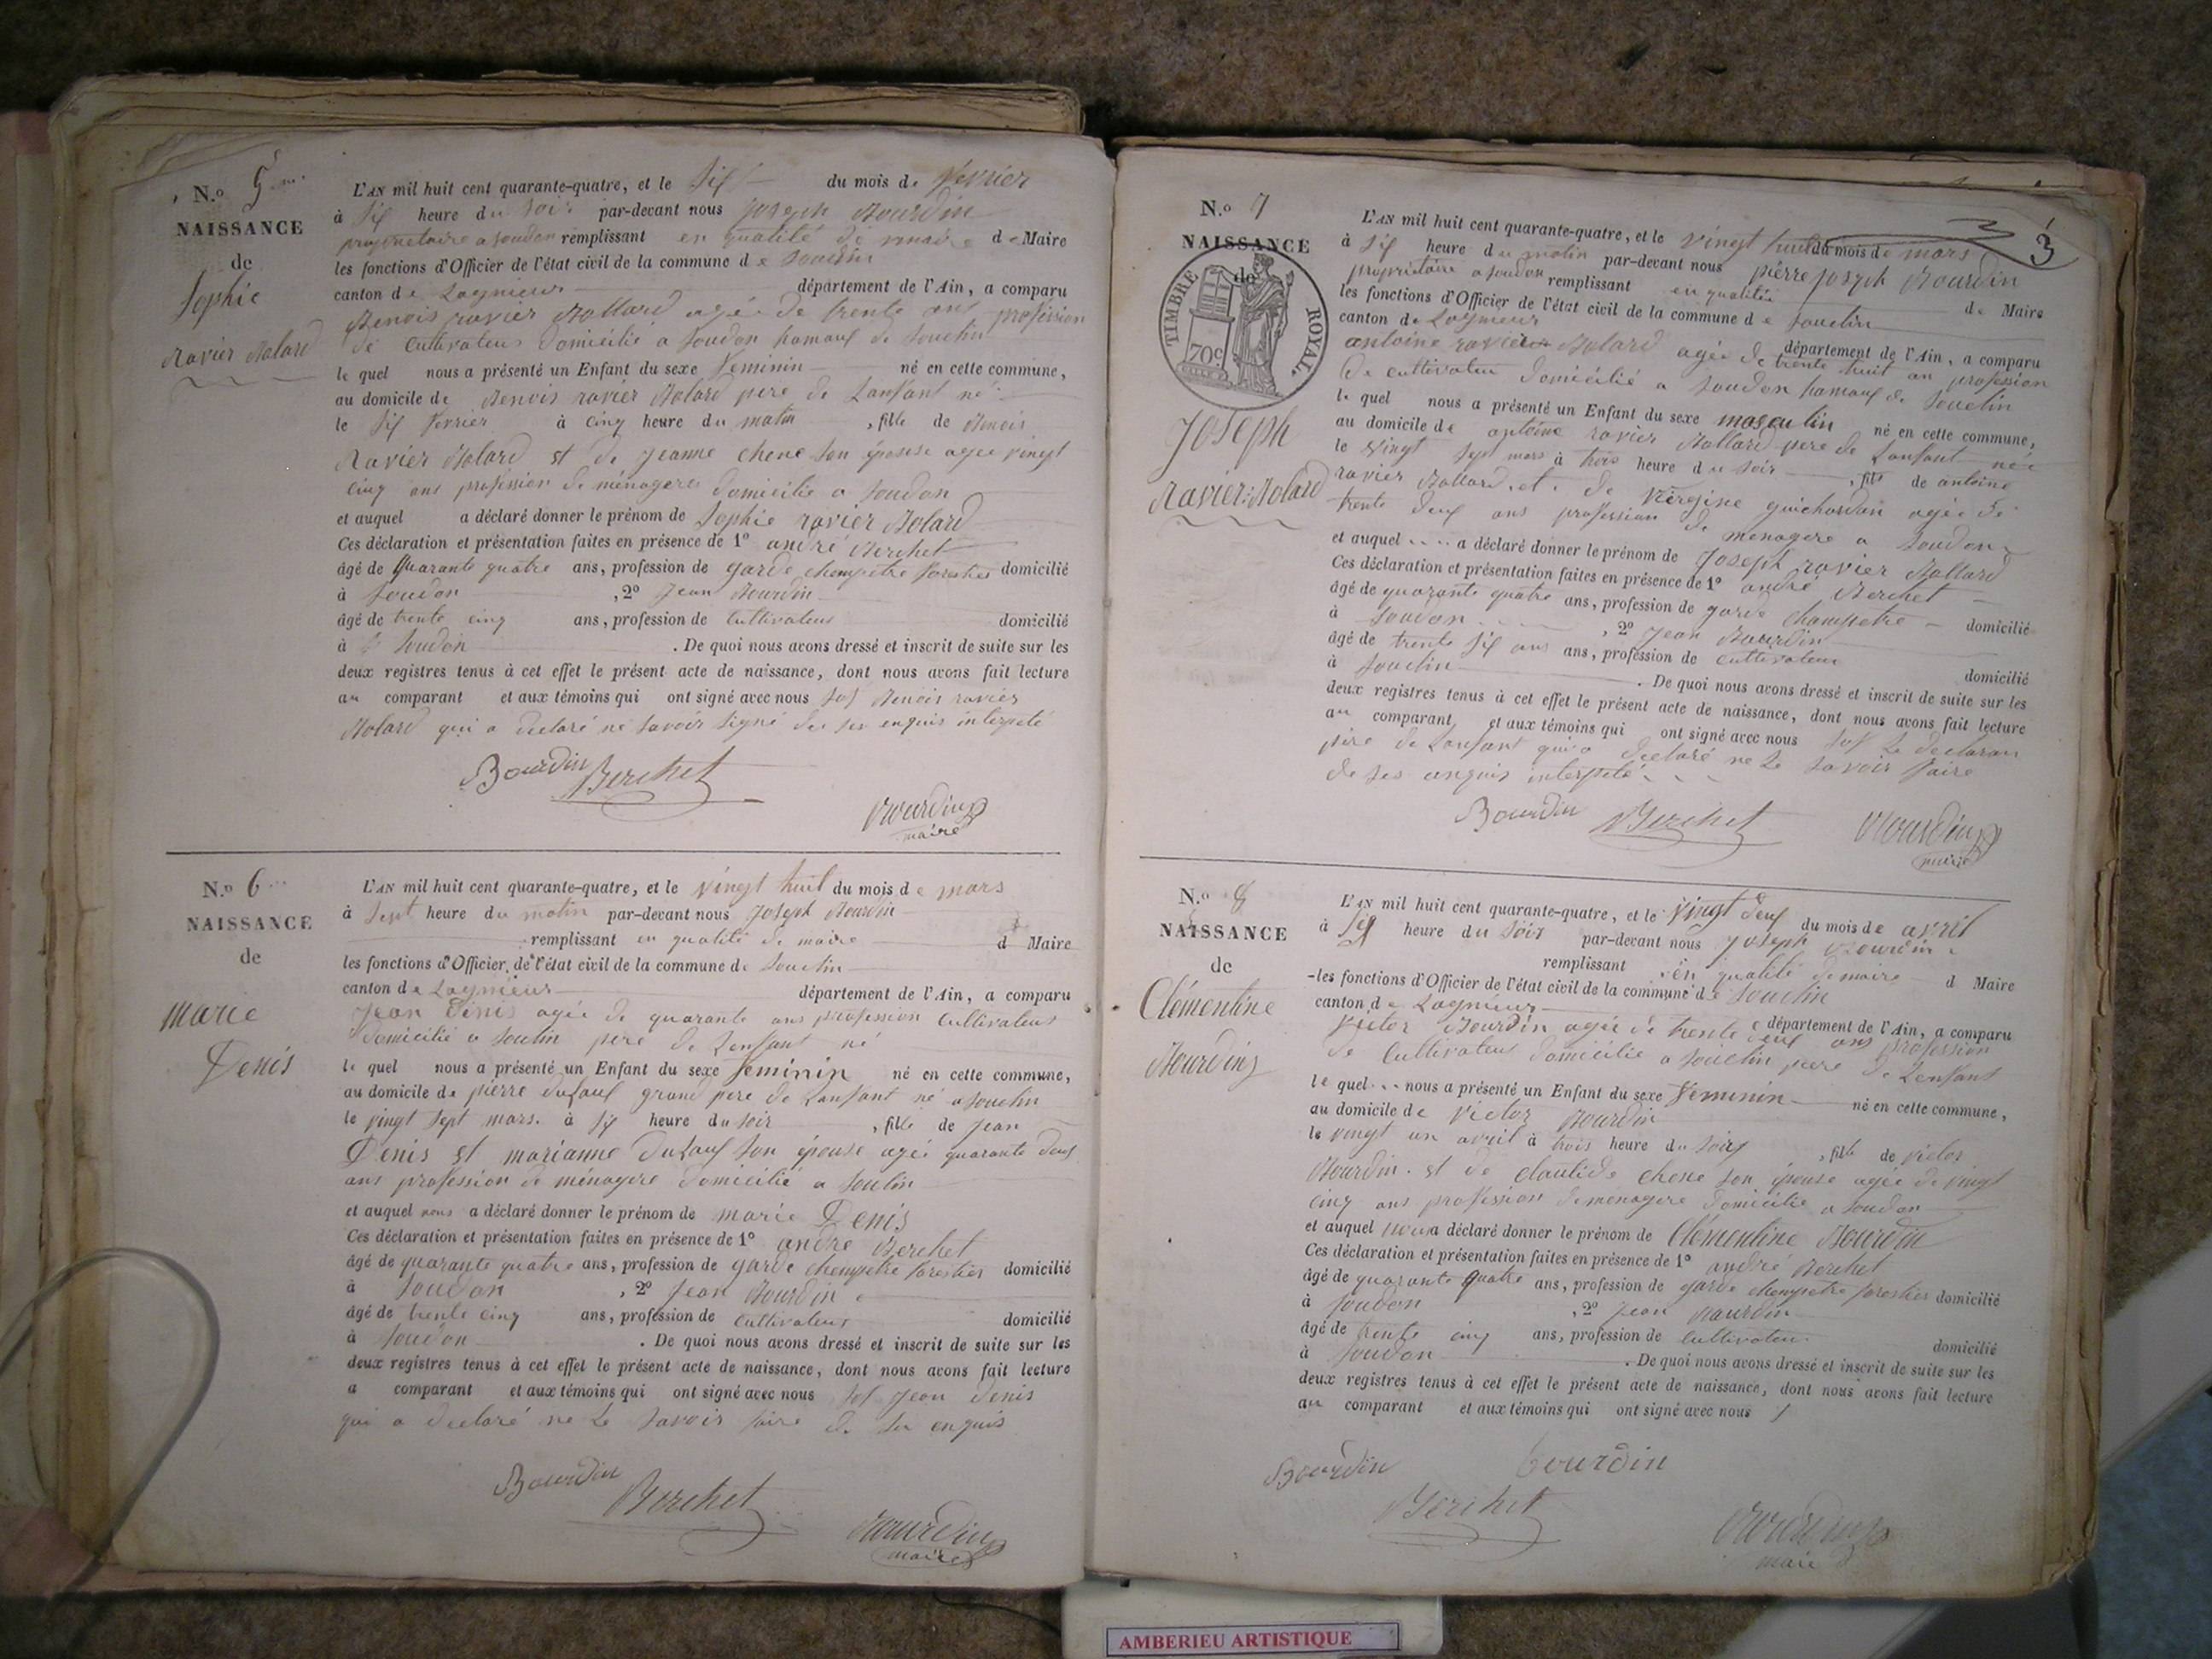 N.o 5
NAISSANCE
de
Sophie
Ravier Molard
L'AN mil huit cent quarante-quatre, et le six du mois de février
à six heure du soir par-devant nous joseph Bourdin
proprietaire a soudon remplissant en qualité de maire de Maire
les fonctions d'Officier de l'état civil de la commune de souclin
canton de Lagnieux département de l'Ain, a comparu
Benois ravier Mollard agée de trente ans profession
de cultivateur domicilié a soudon hamaux de souclin
le quel nous a présenté un Enfant du sexe feminin né en cette commune,
au domicile de Benois ravier Molard pere de Lanfant né
le six fevrier à cinq heure du matin , fille de Benois
Ravier Molard et de jeanne chene son épouse agée vingt
cinq ans profession de ménagere domicilié a soudon
et auquel a déclaré donner le prénom de Sophie ravier Molard
Ces déclaration et présentation faites en présence de 1º andré Berchet
âgé de quarante quatre ans, profession de garde champetre forestier domicilié
à soudon , 2º jean Bourdin
âgé de trente cinq ans, profession de cultivateur domicilié
à soudon . De quoi nous avons dressé et inscrit de suite sur les
deux registres tenus à cet effet le présent acte de naissance, dont nous avons fait lecture
au comparant et aux témoins qui ont signé avec nous sof Benois ravier
Molard qui a declaré ne savoir signé de ses enquis interpelé
Bourdin Berchet
Bourdin
maire
N.o 6
NAISSANCE
de
marie
Denis
L'AN mil huit cent quarante-quatre, et le vingt huit du mois de mars
à sept heure du matin par-devant nous joseph Bourdin
remplissant en qualité de maire d Maire
les fonctions d'Officier de l'état civil de la commune de souclin
canton de Lagnieux département de l'Ain, a comparu
jean Denis agée de quarante ans profession cultivateur
domicilié a soulin pere de Lenfant né
le quel nous a présenté un Enfant du sexe feminin né en cette commune,
au domicile de pierre dufaux grand pere de Lanfant né a souclin
le vingt sept mars à six heure du soir , fille de jean
Denis et marianne Dufaux son épouse agée quarante deux
ans profession de ménagere domicilié a soulin
et auquel nous a déclaré donner le prénom de marie Denis
Ces déclaration et présentation faites en présence de 1º andre Berchet
âgé de quarante quatre ans, profession de garde champetre forestier domicilié
à soudon , 2º jean Bourdin
âgé de trente cinq ans, profession de cultivateur domicilié
à soudon . De quoi nous avons dressé et inscrit de suite sur les
deux registres tenus à cet effet le présent acte de naissance, dont nous avons fait lecture
a comparant et aux témoins qui ont signé avec nous sof jean Denis
qui a declaré ne Le savoir faire de ses enquis
Bourdin
Berchet
Bourdin
maire
3
N.o 7
NAISSANCE
de
TIMBRE ROYAL
70c
Joseph
Ravier Molard
L'AN mil huit cent quarante-quatre, et le vingt huit du mois de mars
à six heure du matin par-devant nous pierre joseph Bourdin
proprietaire a soudon remplissant en qualitée de Maire
les fonctions d'Officier de l'état civil de la commune de souclin
canton de Lagnieux département de l'Ain, a comparu
antoine ravier Molard agée de trente huit an profession
de cultivateur domicilié a soudon hamaux de souclin
le quel nous a présenté un Enfant du sexe masculin né en cette commune,
au domicile de antoine ravier Mollard pere de Lanfant née
le vingt sept mars à trois heure du soir , fils de antoine
ravier Mollard et de Virgine guichardon agée de
trente deux ans profession de menagere a soudon
et auquel a déclaré donner le prénom de Joseph ravier Mollard
Ces déclaration et présentation faites en présence de 1º andré Berchet
âgé de quarante quatre ans, profession de garde champetre domicilié
à soudon , 2º jean Bourdin
âgé de trente six ans ans, profession de cultivateur domicilié
à souclin . De quoi nous avons dressé et inscrit de suite sur les
deux registres tenus à cet effet le présent acte de naissance, dont nous avons fait lecture
au comparant et aux témoins qui ont signé avec nous sof Le declaran
pere de Lanfant qui a declaré ne Le savoir faire
de ses anquis interpelé
Bourdin Berchet Bourdin
maire
N.o 8
NAISSANCE
de
Clémentine
Bourdin
L'AN mil huit cent quarante-quatre, et le vingt deux du mois de avril
à six heure du soir par-devant nous joseph Bourdin
remplissant en qualité de maire d Maire
les fonctions d'Officier de l'état civil de la commune de souclin
canton de Lagnieux département de l'Ain, a comparu
Victor Bourdin agée de trente deux ans profession
de cultivateur domicilié a souclin pere de Lenfant
le quel nous a présenté un Enfant du sexe feminin né en cette commune,
au domicile de victor Bourdin
le vingt un avril à trois heure du soir , fille de victor
Bourdin et de clautide chene son épouse agée de vingt
cinq ans profession de menagere domicilié a soudon
et auquel nous a déclaré donner le prénom de Clémentine Bourdin
Ces déclaration et présentation faites en présence de 1º andré Berchet
âgé de quarante quatre ans, profession de garde champetre forestier domicilié
à soudon , 2º jean Bourdin
âgé de trente cinq ans, profession de cultivateur domicilié
à soudon . De quoi nous avons dressé et inscrit de suite sur les
deux registres tenus à cet effet le présent acte de naissance, dont nous avons fait lecture
au comparant et aux témoins qui ont signé avec nous
Bourdin bourdin
Berchet Bourdin
maire
AMBERIEU ARTISTIQUE